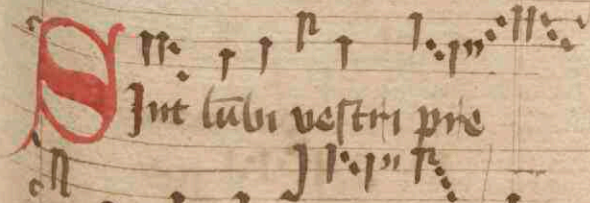 Sint lūbi vestri pre